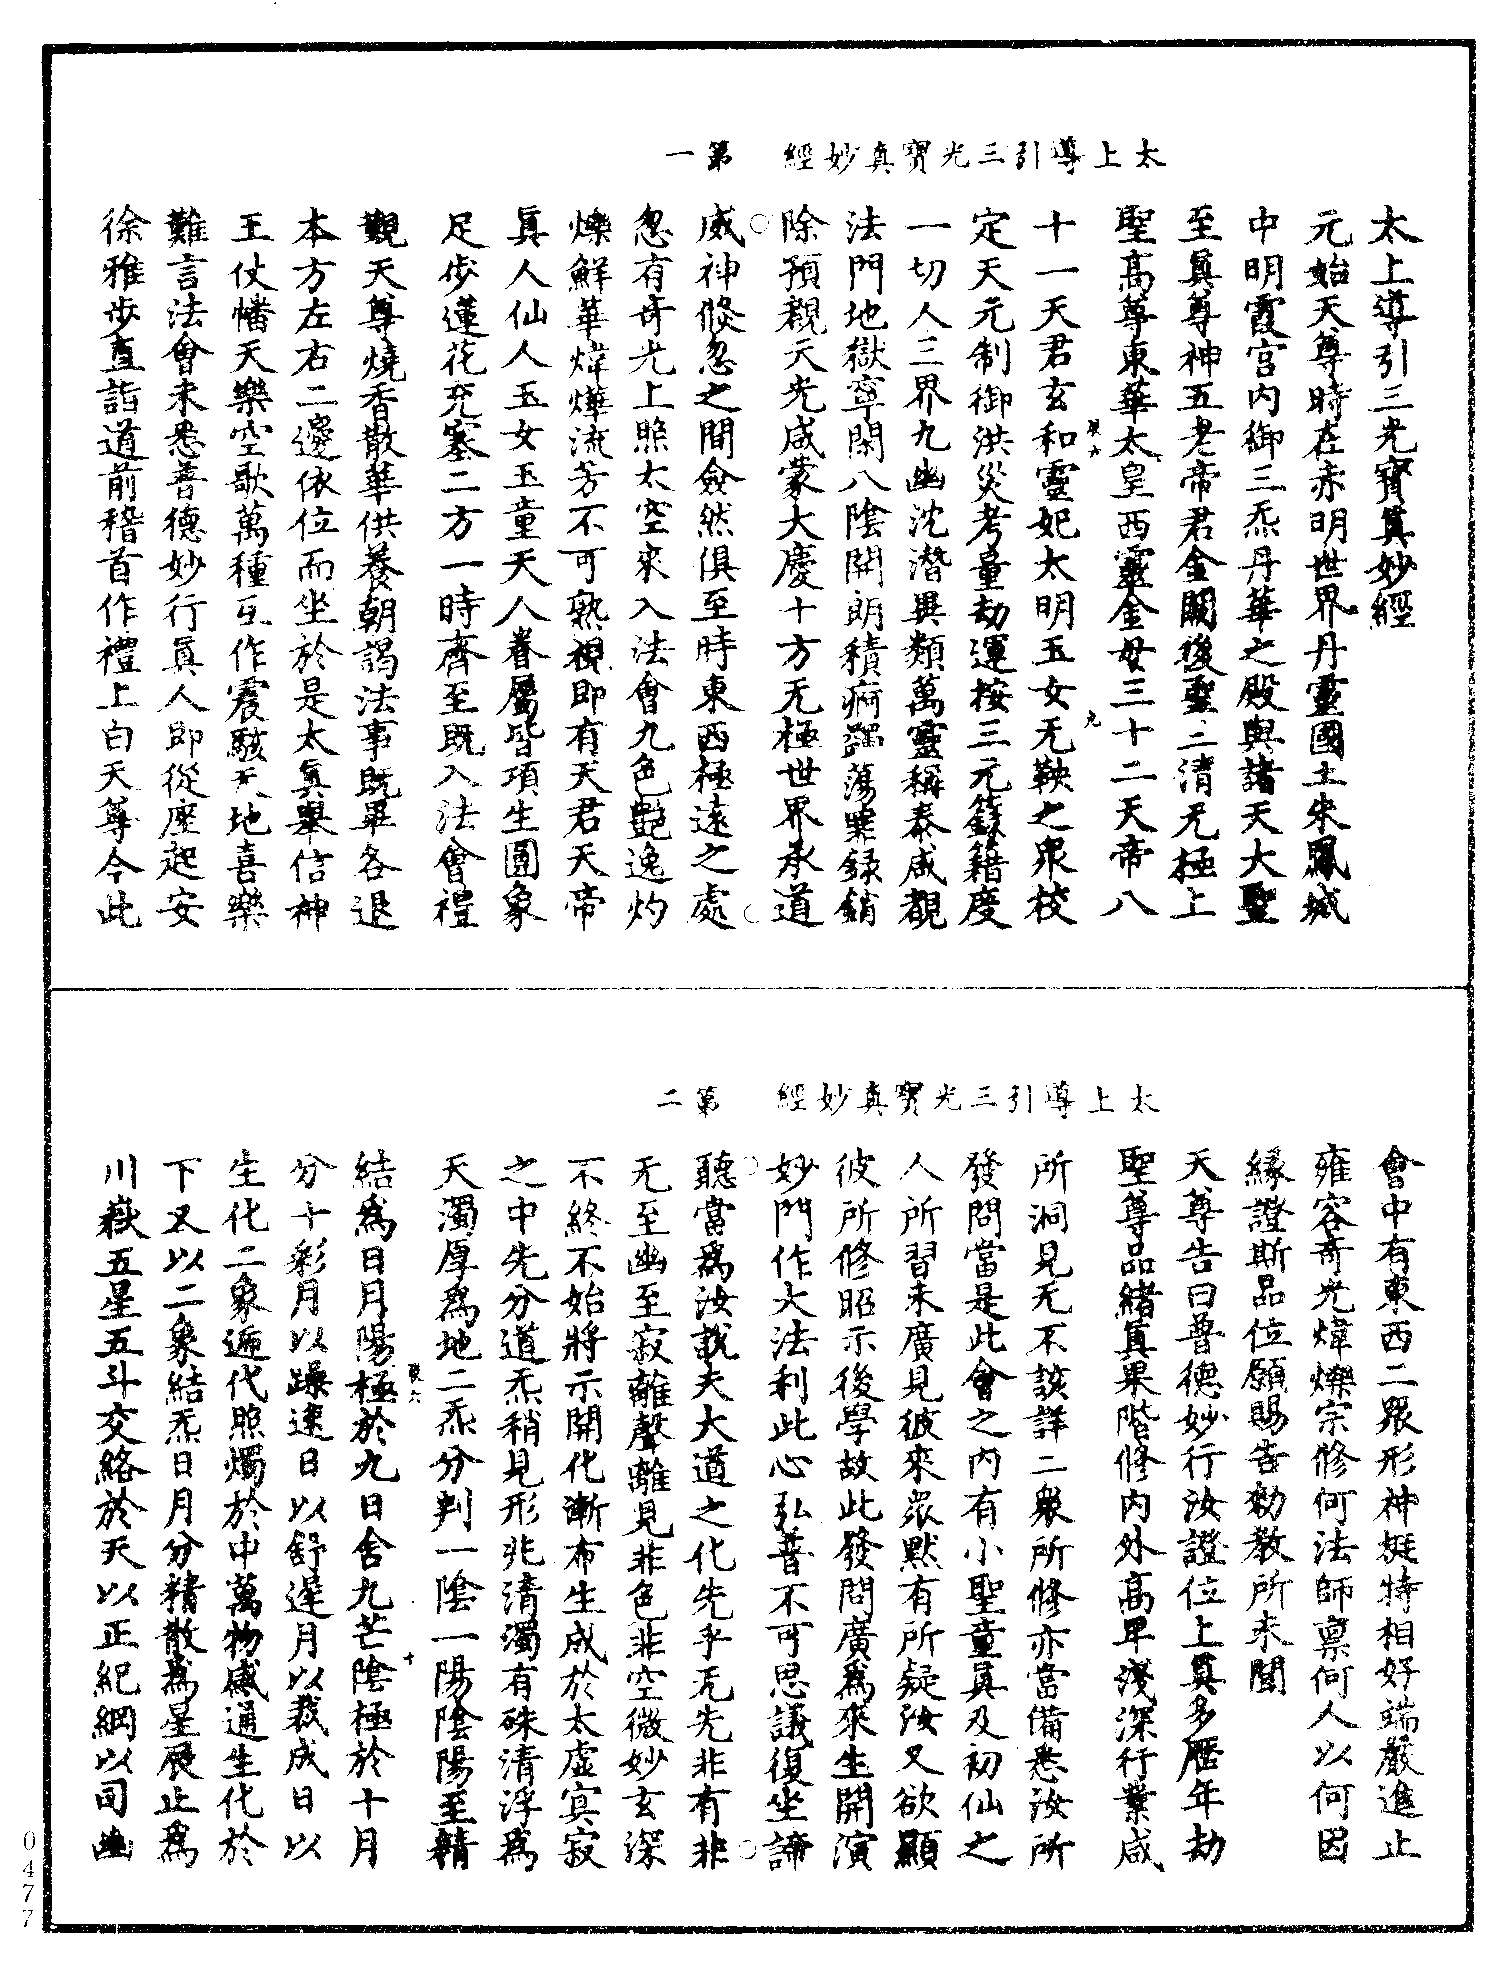 太上導引三光寶真妙經　第一
太上導引三光寶真妙經
元始天尊時在赤明世界丹靈國土朱鳳城
中明霞宮內御三炁丹華之殿與諸天大聖
至真尊神五老帝君金闕後聖二清无極上
聖高尊東華太皇西靈金母三十二天帝八
十一天君玄和靈妃太明玉女无鞅之眾校
定天元制御洪災考量劫運按三元籙籍度
一切人三界九幽沈潛異類萬靈稱泰咸覩
法門地獄寧閑八陰開朗積痾蠲蕩罪錄銷
除預覩天光咸蒙大慶十方无極世界承道
威神倏忽之間僉然俱至時東西極遠之處
忽有奇光上照太空來入法會九色艷逸灼
爍鮮華煒燁流芳不可熟視即有天君天帝
真人仙人玉女玉童天人眷屬皆項生圓象
足步蓮花充塞二方一時齊至既入法會禮
覲天尊燒香散華供養朝謁法事既畢各退
本方左右二邊依位而坐於是太真舉信神
王仗幡天樂空歌萬種互作震駭天地喜樂
難言法會未悉善德妙行真人即從座起安
徐雅步直詣道前稽首作禮上白天尊今此
太上導引三光寶真妙經　第二
會中有東西二眾形神挺特相好端嚴進止
雍容奇光煒爍宗修何法師稟何人以何因
緣證斯品位願賜告勑教所未聞
天尊告曰普德妙行汝證位上真多歷年劫
聖尊品緒真果階修內外高卑淺深行業咸
所洞見无不該詳二眾所修亦當備悉汝所
發問當是此會之內有小聖童真及初仙之
人所習未廣見彼來眾默有所疑汝又欲顯
彼所修昭示後學故此發問廣為來生開演
妙門作大法利此心弘普不可思議復坐諦
聽當為汝說夫大道之化先乎无先非有非
无至幽至寂離聲離見非色非空微妙玄深
不終不始將示開化漸布生成於太虛寘寂
之中先分道炁稍見形兆清濁有殊清浮為
天濁厚為地二炁分判一陰一陽陰陽至精
結為日月陽極於九日含九芒陰極於十月
分十彩月以躁速日以舒遲月以裁成日以
生化二象遞代照燭於中萬物感通生化於
下又以二象結炁日月分精散為星辰止為
川嶽五星五斗交絡於天以正紀綱以司幽
0477